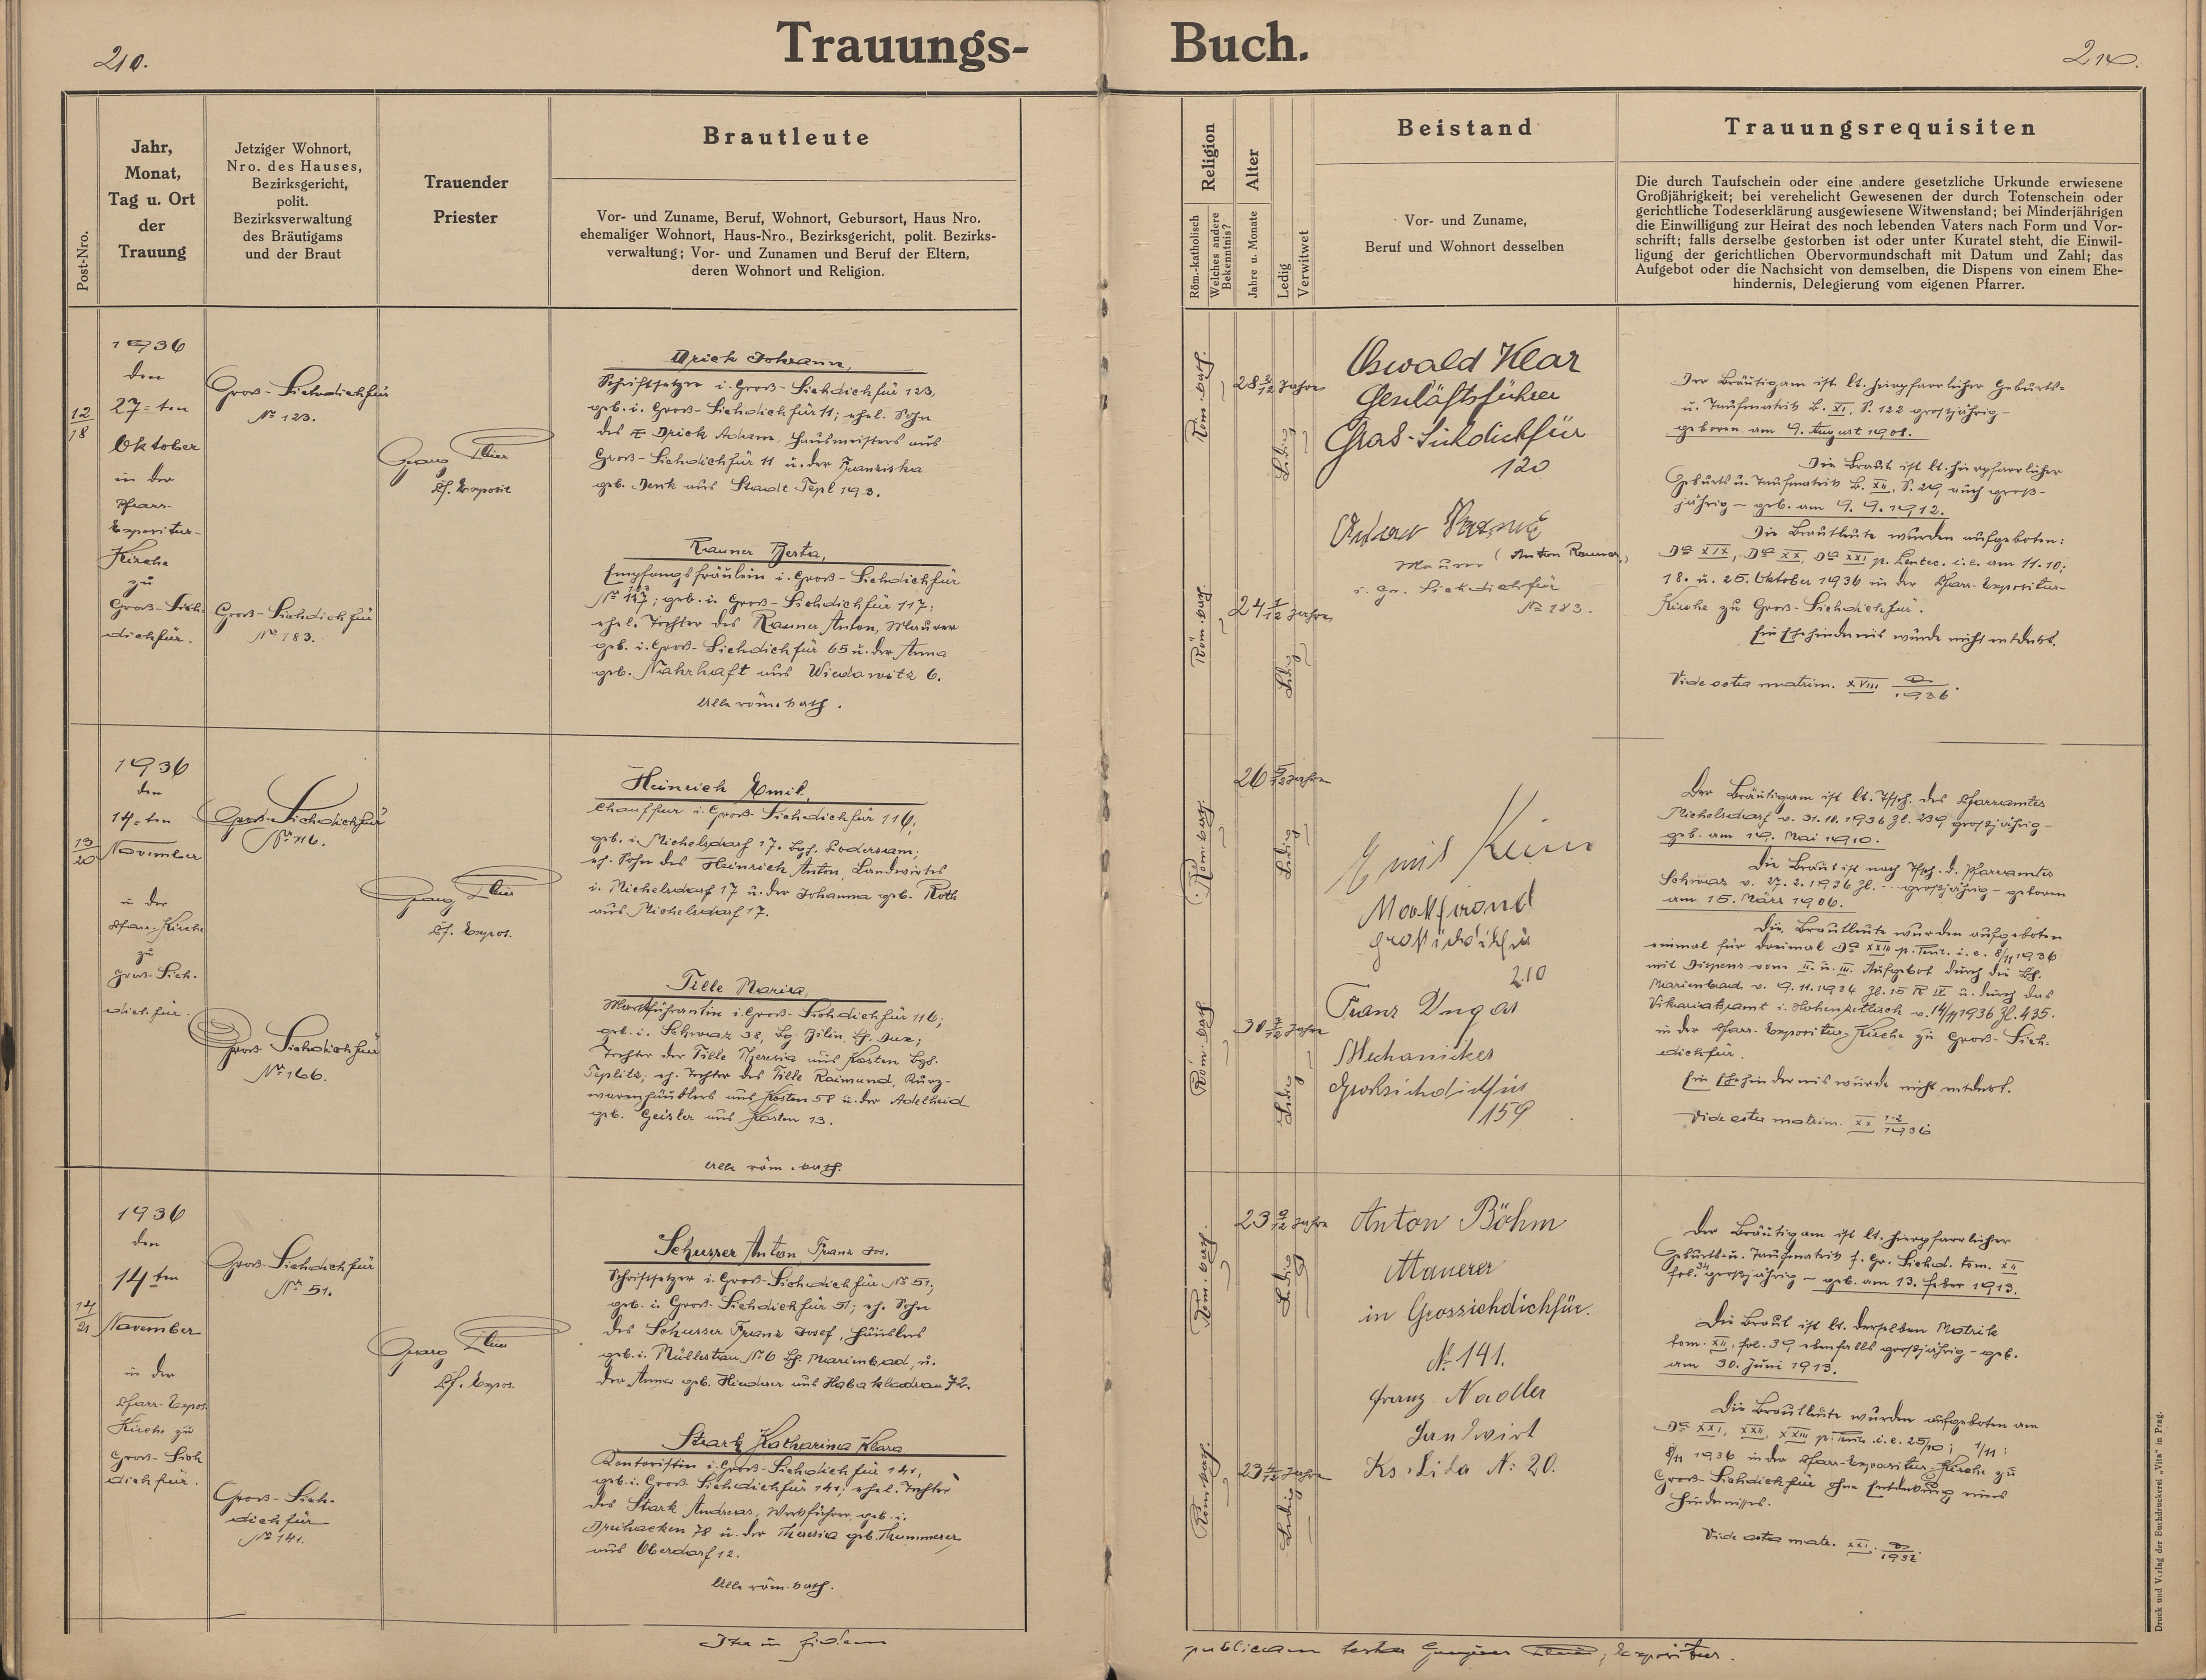 210.
Trauungs-
Buch.
210.
Post-Nro.
Jahr,
Monat,
Tag u. Ort
der
Trauung
Jetziger Wohnort,
Nro. des Hauses,
Bezirksgericht,
polit.
Bezirksverwaltung
des Bräutigams
und der Braut
Trauender
Priester
Brautleute
Vor- und Zuname, Beruf, Wohnort, Gebursort, Haus Nro.
ehemaliger Wohnort, Haus-Nro., Bezirksgericht, polit. Bezirks-
verwaltung; Vor- und Zunamen und Beruf der Eltern,
deren Wohnort und Religion.
Religion
Röm.-katholisch
Welches andere
Bekenntnis?
Alter
Jahre u. Monate
Ledig
Verwitwet
Beistand
Vor- und Zuname,
Beruf und Wohnort desselben
Trauungsrequisiten
Die durch Taufschein oder eine andere gesetzliche Urkunde erwiesene
Großjährigkeit; bei verehelicht Gewesenen der durch Totenschein oder
gerichtliche Todeserklärung ausgewiesene Witwenstand; bei Minderjährigen
die Einwilligung zur Heirat des noch lebenden Vaters nach Form und Vor-
schrift; falls derselbe gestorben ist oder unter Kuratel steht, die Einwil-
ligung der gerichtlichen Obervormundschaft mit Datum und Zahl; das
Aufgebot oder die Nachsicht von demselben, die Dispens von einem Ehe-
hindernis, Delegierung vom eigenen Pfarrer.
12/18
1936
den
27-ten
Oktober
in der
Pfarr-
Expositur-
Kirche
zu
Groß-Sich-
dichfür.
Groß-Sichdichfür
No 123.
Groß-Sichdichfür
No 183.
Georg
Pf. Exposit
Drick Johann,
Schriftsetzer i. Groß-Sichdichfür 123,
geb. i. Groß-Sichdichfür 11; ehel. Sohn
des Drick Adam, Hausmeisters aus
Groß-Sichdichfür 11 u. der Franziska
geb. Denk aus Stadt Tepl 193.
Rauner Berta,
Empfangsfräulein i. Groß-Sichdichfür
geb. i. Groß-Sichdichfür 117;
ehel. Tochter des Rauner Anton, Maurer
geb. i. Groß-Sichdichfür 65 u. der Anna
geb. Nahrhaft aus Wiedowitz 6.
Alle röm. kath.
Röm. kath.
28 2/12 Jahre
Ledig
Röm. kath.
24 1/12 Jahre
Ledig
Oswald Klar
Geschäftsführer
Groß-Sichdichfür
120
(Anton Rauner,)
Maurer
i. Gr. Sichdichfür
No 183.
Der Bräutigam ist lt. hierpfarrlicher Geburts-
u. Taufmatrik B. XI, S. 122 großjährig -
geboren am 9. August 1908.
Die Braut ist lt. hierpfarrlicher
Geburts u. Taufmatrik B. XII, S. 24, auch groß-
jährig - geb. am 9. 9. 1912.
Die Brautleute wurden aufgeboten:
Da XIX, Da XX, Da XXI p. Pentec. i. e. am 11. 10;
18. u. 25. Oktober 1936 in der Pfarr-Expositur-
Kirche zu Groß-Sichdichfür.
Ein Ehehindernis wurde nicht entdeckt.
Vide acta matrim. XVIII /1936.
13/20
1936
den
14-ten
November
in der
Pfarr-Kirche
zu
Groß-Sich-
dichfür.
Groß-Sichdichfür
No 116.
Groß-Sichdichfür
No 166.
Georg
Pf. Expos.
Heinrich Emil,
Chauffeur i. Groß-Sichdichfür 116;
geb. i. Michelsdorf 17. Bgh. Podersam;
eh. Sohn des Heinrich Anton, Landwirtes
i. Michelsdorf 17 u. der Johanna geb. Roth
aus Michelsdorf 17.
Tille Maria,
i. Groß-Sichdichfür 116;
geb. i. Schwaz 38, Bg. Bilin, Bh. Dux;
Tochter der Tille Theresia aus Kosten Bgh.
Teplitz; eh. Tochter des Tille Raimund, Kurz-
warenhändlers aus Kosten 58 u. der Adelheid
geb. Geisler aus Kosten 13.
Alle röm. kath.
Röm. kath.
26 5/12 Jahre
Ledig
Röm. kath.
30 7/12 Jahre
Ledig
Emil Keim
210
Franz Ungar
Mechaniker
Großsichdichfür
159
Der Bräutigam ist lt. Tfsch. des Pfarramtes
Michelsdorf v. 31. 10. 1936 Zl. 239 großjährig -
geb. am 19. Mai 1910.
Die Braut ist nach Tfsch. d. Pfarramtes
Schwaz v. 27. 2. 1936 Zl. ... großjährig - geboren
am 15. März 1906.
Die Brautleute wurden aufgeboten
einmal für dreimal Da XXIII p. Pent. i. e. 8/11 1936
mit Dispens vom II. u. III. Aufgebot durch die Bh.
Marienbad v. 9. 11. 1934 Zl. 15 R IV u. durch das
Vikariatsamt i. Hohenzetlisch v. 14/11 1936 Zl. 435.
in der Pfarr-Expositur-Kirche zu Groß-Sich-
dichfür.
Ein Ehehindernis wurde nicht entdeckt.
Vide acta matrim. XX 1-2/1936
14/21
1936
den
14 ten
November
in der
Pfarr-Expos.
Kirche zu
Groß-Sich
dichfür.
Groß-Sichdichfür
No 51.
Groß-Sich-
dichfür
No 141.
Georg
Pf. Expos.
Schusser Anton Franz Jos.
Schriftsetzer i. Groß-Sichdichfür No 51;
geb. i. Groß-Sichdichfür 51; eh. Sohn
des Schusser Franz Josef, Häuslers
geb. i. Müllestau No 6 Bh. Marienbad, u.
der Anna geb. Hiederer aus Habakladrau 72.
Stark Katharina Klara
Kontoristin i. Groß-Sichdichfür 141,
geb. i. Groß-Sichdichfür 141; ehel. Tochter
des Stark Andreas, Werkführer, geb. i.
Dreihacken 78 u. der Theresia geb. Thummerer
aus Oberdorf 12.
Alle röm. kath.
Röm. kath.
23 9/12 Jahre
Ledig
Röm. kath.
23 4/12 Jahre
Ledig
Anton Böhm
Mauerer
in Grossichdichfür.
No 141.
Franz Nadler
Landwirt
N: 20.
Der Bräutigam ist lt. hierpfarrlicher
Geburts u. Taufmatrik f. Gr. Sichd. tom. XII
fol. 34 großjährig - geb. am 13. Feber 1913.
Die Braut ist lt. derselben Matrik
tom. XII, fol. 39 ebenfalls großjährig - geb.
am 30. Juni 1913.
Die Brautleute wurden aufgeboten am
Da XXI, XXII, XXIII p. Pent. i. e. 25/10; 1/11;
8/11 1936 in der Pfarr-Expositur-Kirche zu
Groß-Sichdichfür ohne Entdeckung eines
Hindernisses.
Vide acta matr. XXI.
Ita in fidem
publicam testor Expositus.
Druck und Verlag der Buchdruckerei „Vita" in Prag.